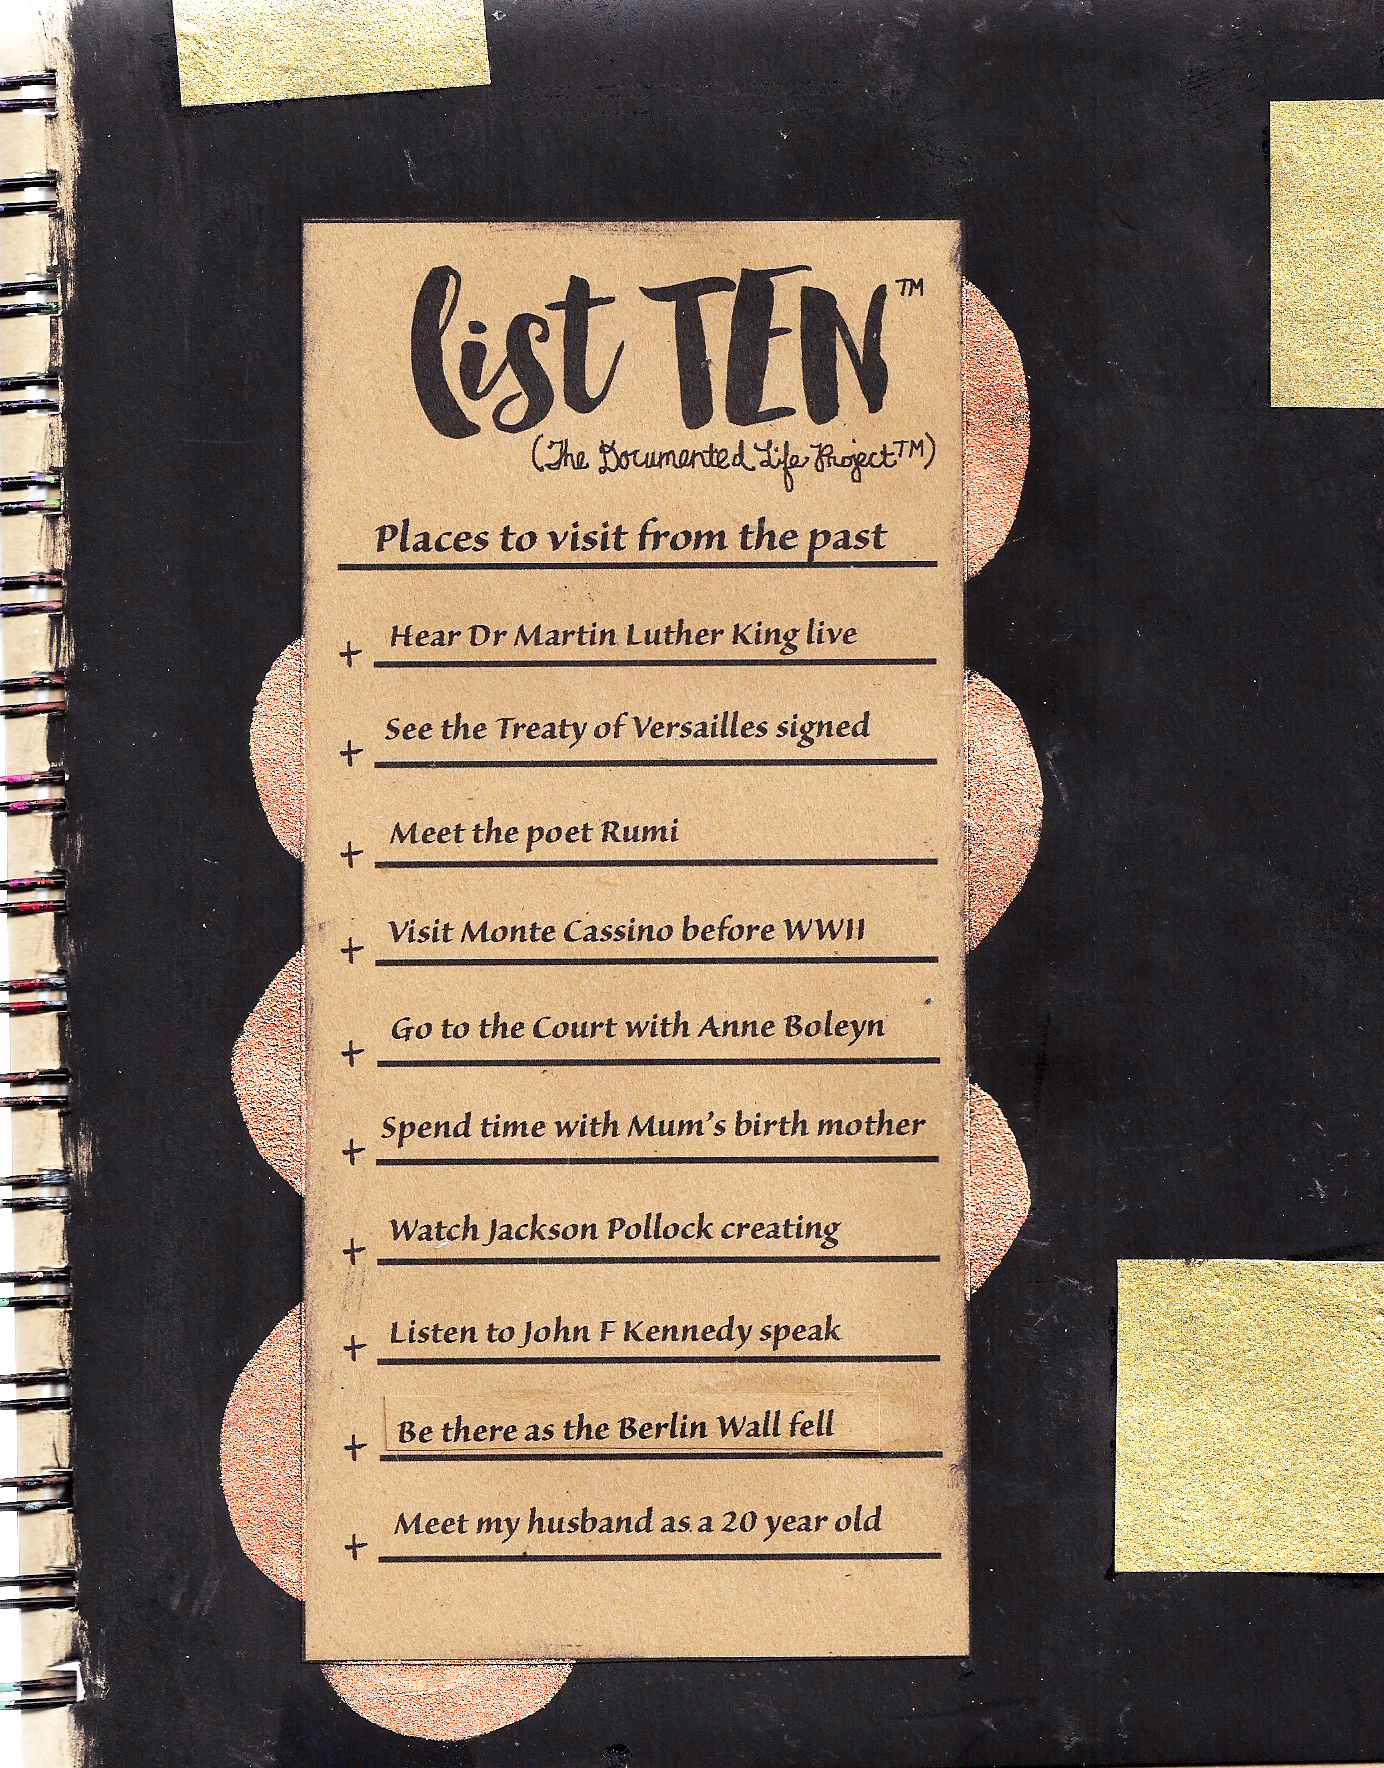 list TEN™
(The Documented Life Project™)
Places to visit from the past
+ Hear Dr Martin Luther King live
+ See the Treaty of Versailles signed
+ Meet the poet Rumi
+ Visit Monte Cassino before WWII
+ Go to the Court with Anne Boleyn
+ Spend time with Mum's birth mother
+ Watch Jackson Pollock creating
+ Listen to John F Kennedy speak
+ Be there as the Berlin Wall fell
+ Meet my husband as a 20 year old